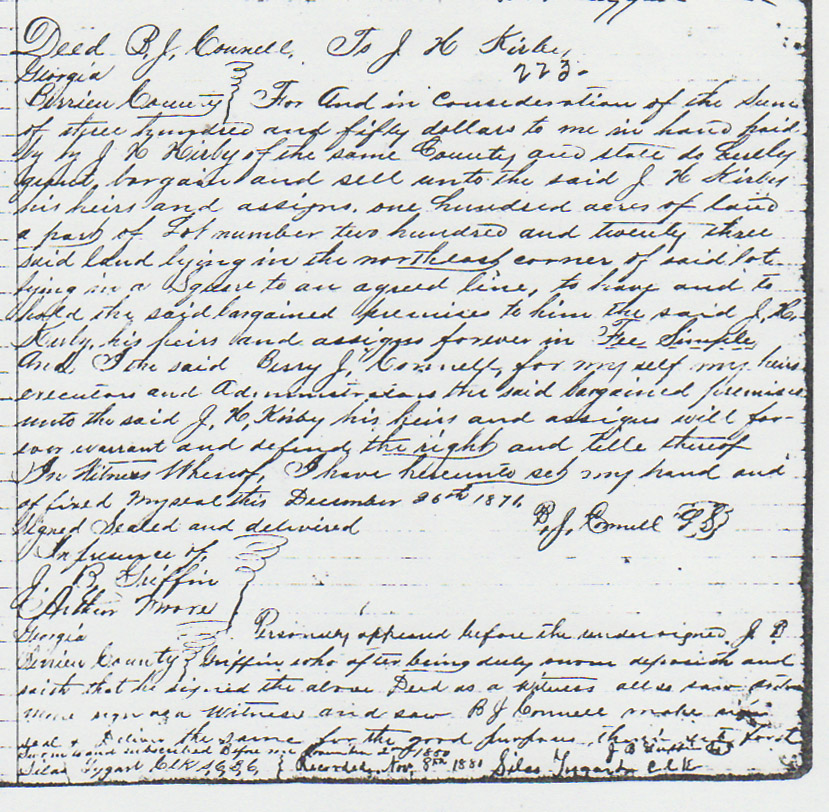 Deed B. J. Connell. To J H Kirby,
Georgia 223.
Berrien County For And in Consideration of the Sum
of three hundred and fifty dollars to me in hand paid
by J H Kirby of the same County and state do hereby
grant, bargain and sell unto the said J H Kirby
his heirs and assigns, one hundred acres of land
a part of Lot number two hundred and twenty three
said land lying in the northeast corner of said lot
lying in a Square to an agreed line, to have and to
hold the said bargained premises to him the said J. H.
Kirby, his heirs and assigns forever in Fee Simple
And I the said Berry J. Connell, for my self my heirs
executors and Administrators the said bargained premises
unto the said J, H, Kirby his heirs and assigns will for-
ever warrant and defend the right and title thereof
In Witness Whereof, I have hereunto set my hand and
affixed my seal this December 26th
Signed Sealed and delivered B, J, Connell
In presence of,
J. B, Griffin
Arthur Moore
Georgia Personly appeared before the undersigned, J. B
Berrien County Griffin who after being duly sworn deposith and
saith that he signed the above Deed as a witness also saw
sign as a Witness and saw B J Connell make
seal & deliver the same for the good purpose set forth
Sworn to and subscribed Before me 1880
Silas Tygart Clk Recorded, Nov, 8th 1880 Silas Tygart Clk